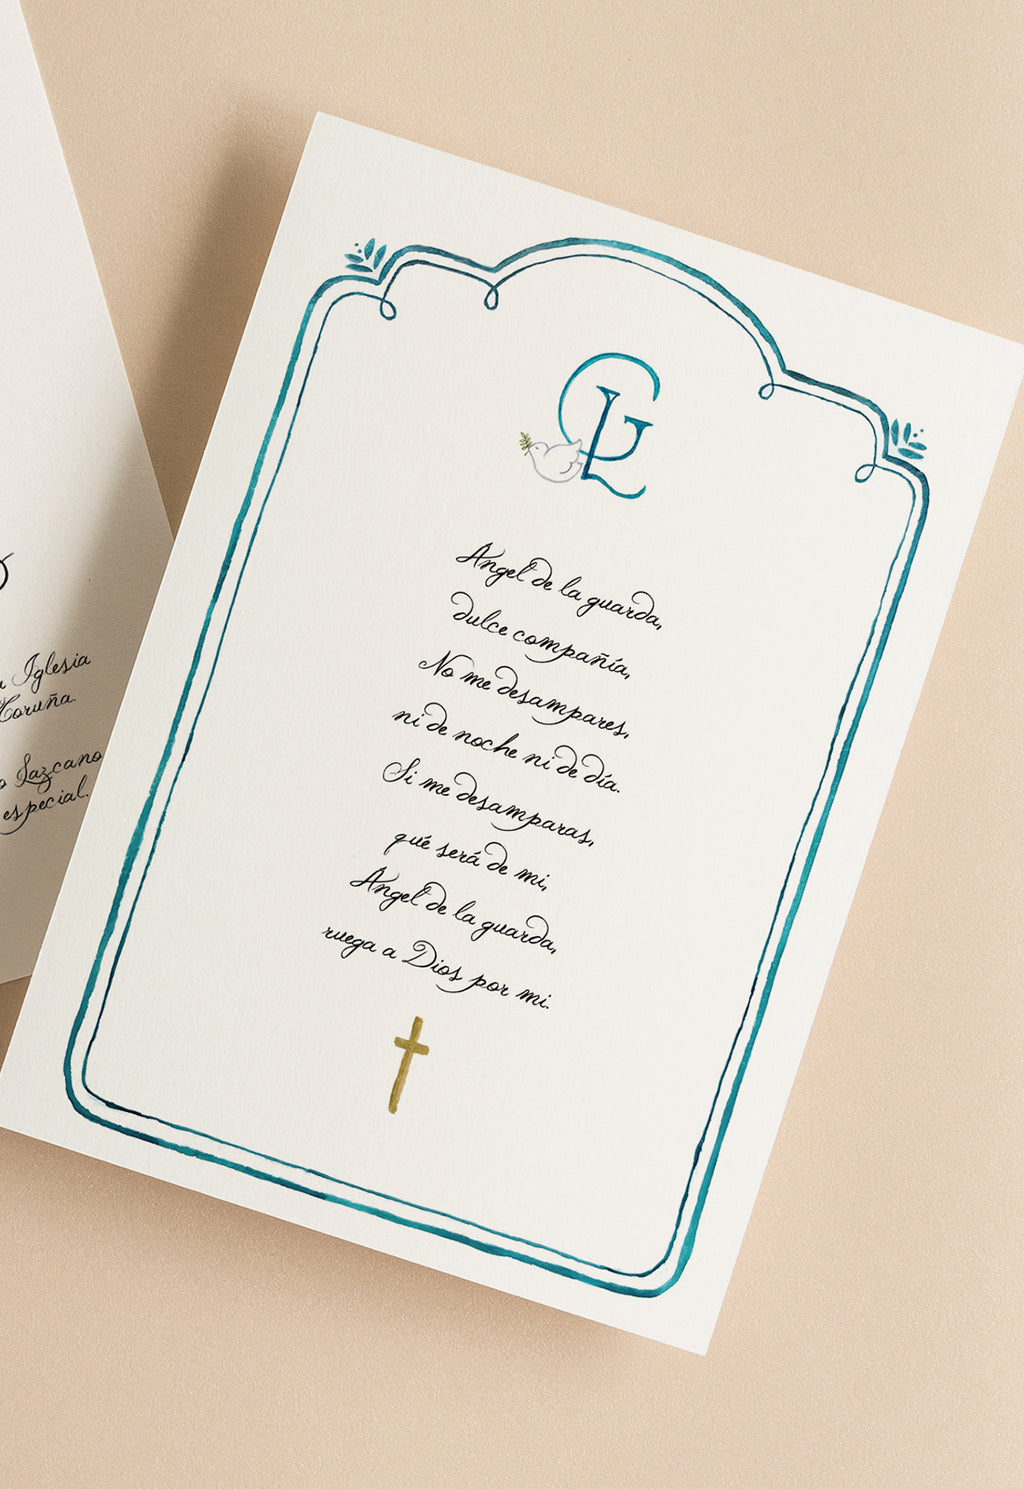 Iglesia
Coruña.
Lazcano
especial.
GL
Ángel de la guarda,
dulce compañía,
No me desampares,
ni de noche ni de día.
Si me desamparas,
qué será de mi,
Ángel de la guarda,
ruega a Dios por mi.